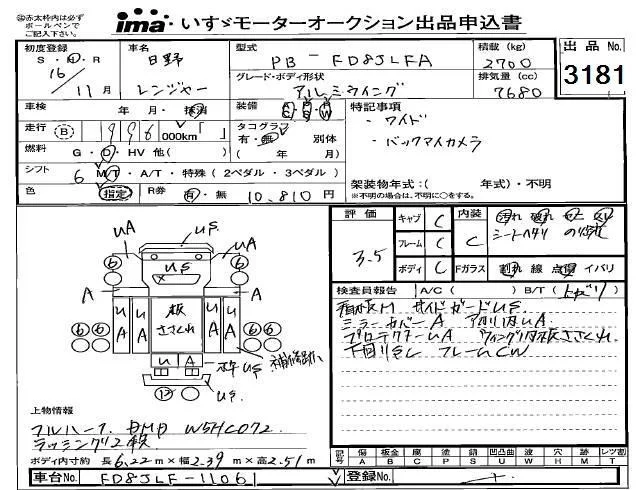 ※赤太枠内は必ずボールペンでご記入下さい。
ima いすゞモーターオークション出品申込書
初度登録 S・H・R 16 / 11月
車名 日野 レンジャー
型式 PB - FD8JLFA
積載 (kg) 2700
出品No. 3181
グレード・ボディ形状 アルミウイング
排気量 (cc) 7680
車検 年・月・抹消
装備 A/C P/S P/W
特記事項
・ワイド
・バックアイカメラ
走行 B 1996 000km「 」
タコグラフ 有・無 別体 ( 年 月)
燃料 G・D・HV 他( )
シフト 6 MT・A/T・特殊 (2ペダル・3ペダル)
架装物年式:( 年式)・不明
※不明の場合は、不明に○をする。
色 指定 R券 有・無 10,810円
評価 3.5
キャブ C
フレーム C
ボディ C
内装 C
汚れ 破れ
シートヘタリ
Fガラス 割れ 線 点貫 イバリ
検査員報告 A/C ( ) B/T (上がり)
サイドガードUS
ミラーカバーA
プロテクターUA ウィング内板ささくれ
下回りSC フレームCW
UA US UA
6 6
US
A A
UA UA 板ささくれ UA UA
66 66
U A US 補修跡
12 US
上物情報
フルハーフ DMD W5HC072
ラッシング2段
ボディ内寸約 長6.22m×幅2.39m×高2.51m
記号 傷A 板金B 腐C 塗P 錆S 凹凸曲U 波W 穴H 欠M レツ割T
車台No. FD8JLF-1106
登録No.